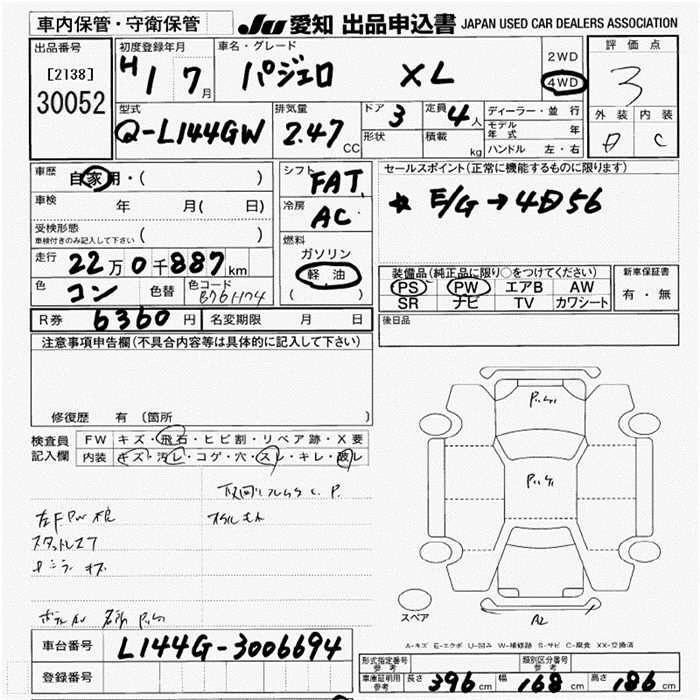 車内保管・守衛保管
JU 愛知 出品申込書 JAPAN USED CAR DEALERS ASSOCIATION
出品番号
[2138]
30052
初度登録年月
H 1 7月
車名・グレード
パジェロ XL
2WD
4WD
評価点
3
外装 内装
D C
型式
Q-L144GW
排気量
2.47 CC
ドア 3
定員 4人
形状
積載 kg
ディーラー・並行
モデル年式 年
ハンドル 左・右
車歴 自家用・( )
車検 年 月( 日)
受検形態
車検付きのみ記入して下さい ( )
走行 22万0千887km
色 コン 色替 色コード
シフト FAT
冷房 AC
燃料
ガソリン
軽油
( )
セールスポイント(正常に機能するものに限ります)
* E/G→4D56
装備品(純正品に限り○をつけてください)
PS PW エアB AW
SR ナビ TV カワシート
新車保証書
有・無
R券 6360円 名変期限 月 日
後日品
注意事項申告欄(不具合内容等は具体的に記入して下さい)
修復歴 有 (箇所
検査員記入欄
FW キズ・飛石・ヒビ割・リペア跡・X要
内装 キズ・汚レ・コゲ・穴・スレ・キレ・破レ
左F PW
スタットレス7
A2
スペア
A-キズ E-エクボ U-凹み W-補修跡 S-サビ C-腐食 XX-交換済
車台番号 L144G-3006694
登録番号
形式指定番号 参考
類別区分番号 参考
車庫証明用 参考 長さ 396cm 幅 168cm 高さ 186cm